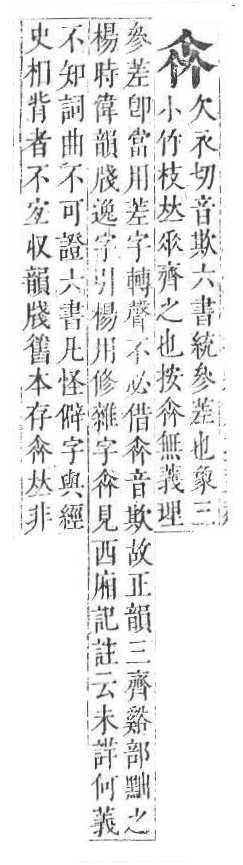 欠衣切音欺六書統參差也象三
小竹枝𠀤齊之也按無義理
參差卽當用差字轉聲不必借音欺故正韻三齊谿部黜之
楊時偉韻牋逸字引楊用修雜字見西廂記註云未詳何義
不知詞曲不可證六書凡怪僻字與經
史相背者不宜収韻牋舊本存𠀤非